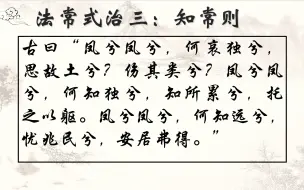 法常式治三：知常则
古曰“凤兮凤兮，何哀独兮，
思故土兮？伤其类兮？凤兮凤
兮，何知独兮，知所累兮，托
之以躯。凤兮凤兮。何知远兮，
忧兆民兮，安居弗得。”